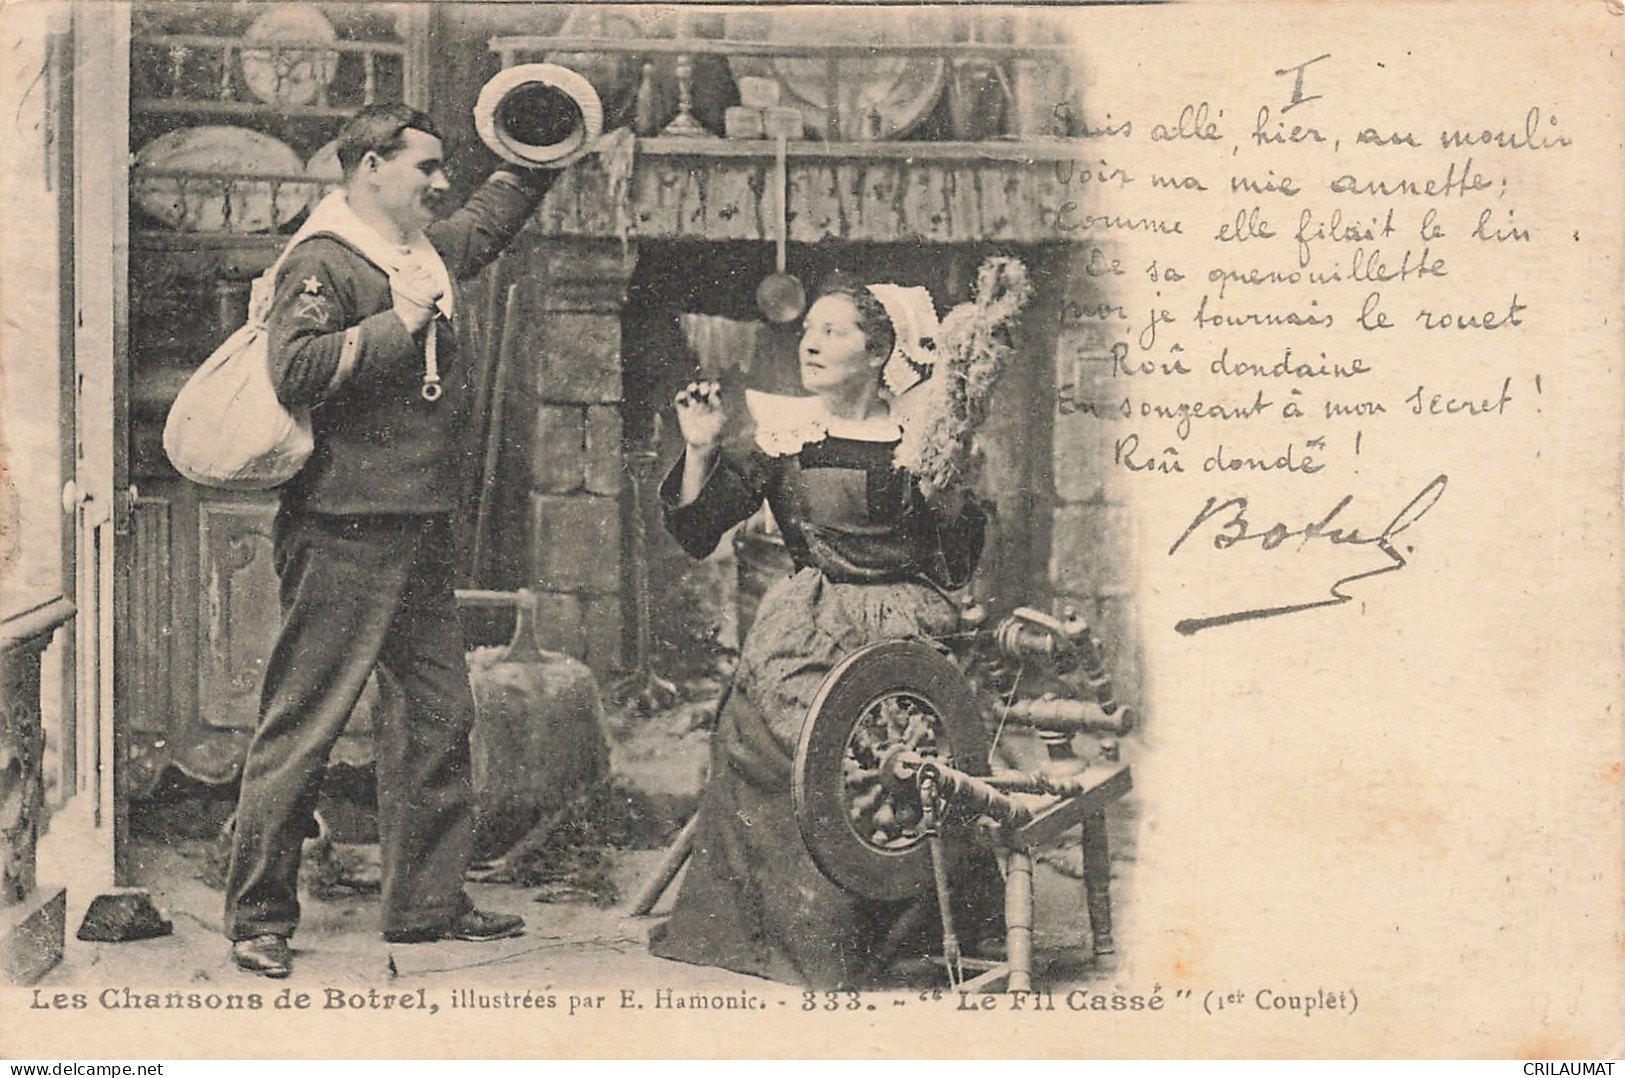 I
Suis allé, hier, au moulin
Voir ma mie annette;
Comme elle filait le lin
De sa quenouillette
Moi, je tournais le rouet
Roû dondaine
En songeant à mon secret !
Roû dondé !
Botrel.
Les Chansons de Botrel, illustrées par E. Hamonic. - 333. - “ Le Fil Cassé ” (1er Couplet)
CRILAUMAT